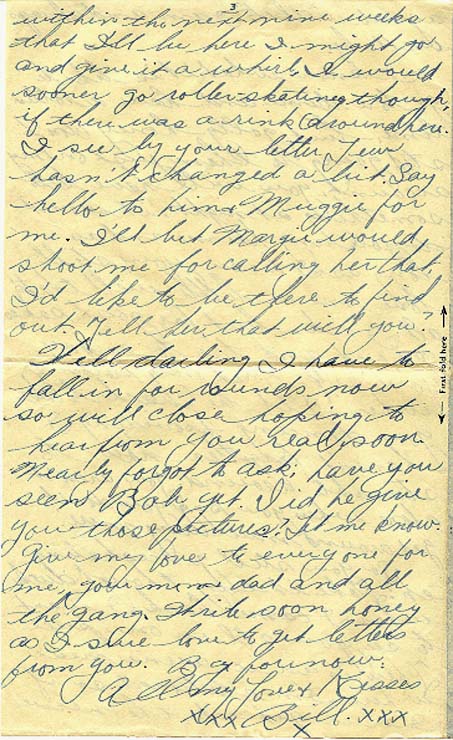 3
within the next nine weeks
that I'll be here I might go
and give it a whirl. I would
sooner go roller-skating though,
if there was a rink around here.
I see by your letter, Tew
hasn't changed a bit. Say
hello to him & Muggie for
me. I'll bet Margie would
shoot me for calling her that.
I'd like to be there to find
out. Tell her that will you?
Well darling I have to
fall in for rounds now
so will close hoping to
hear from you real soon.
Nearly forgot to ask; have you
seen Bob yet. Did he give
you those pictures? Let me know.
Give my love to everyone for
me, your mom & dad and all
the gang. Write soon honey
as I sure love to get letters
from you. Bye for now.
All my Love & Kisses
xxx Bill. xxx
x
← First fold here →